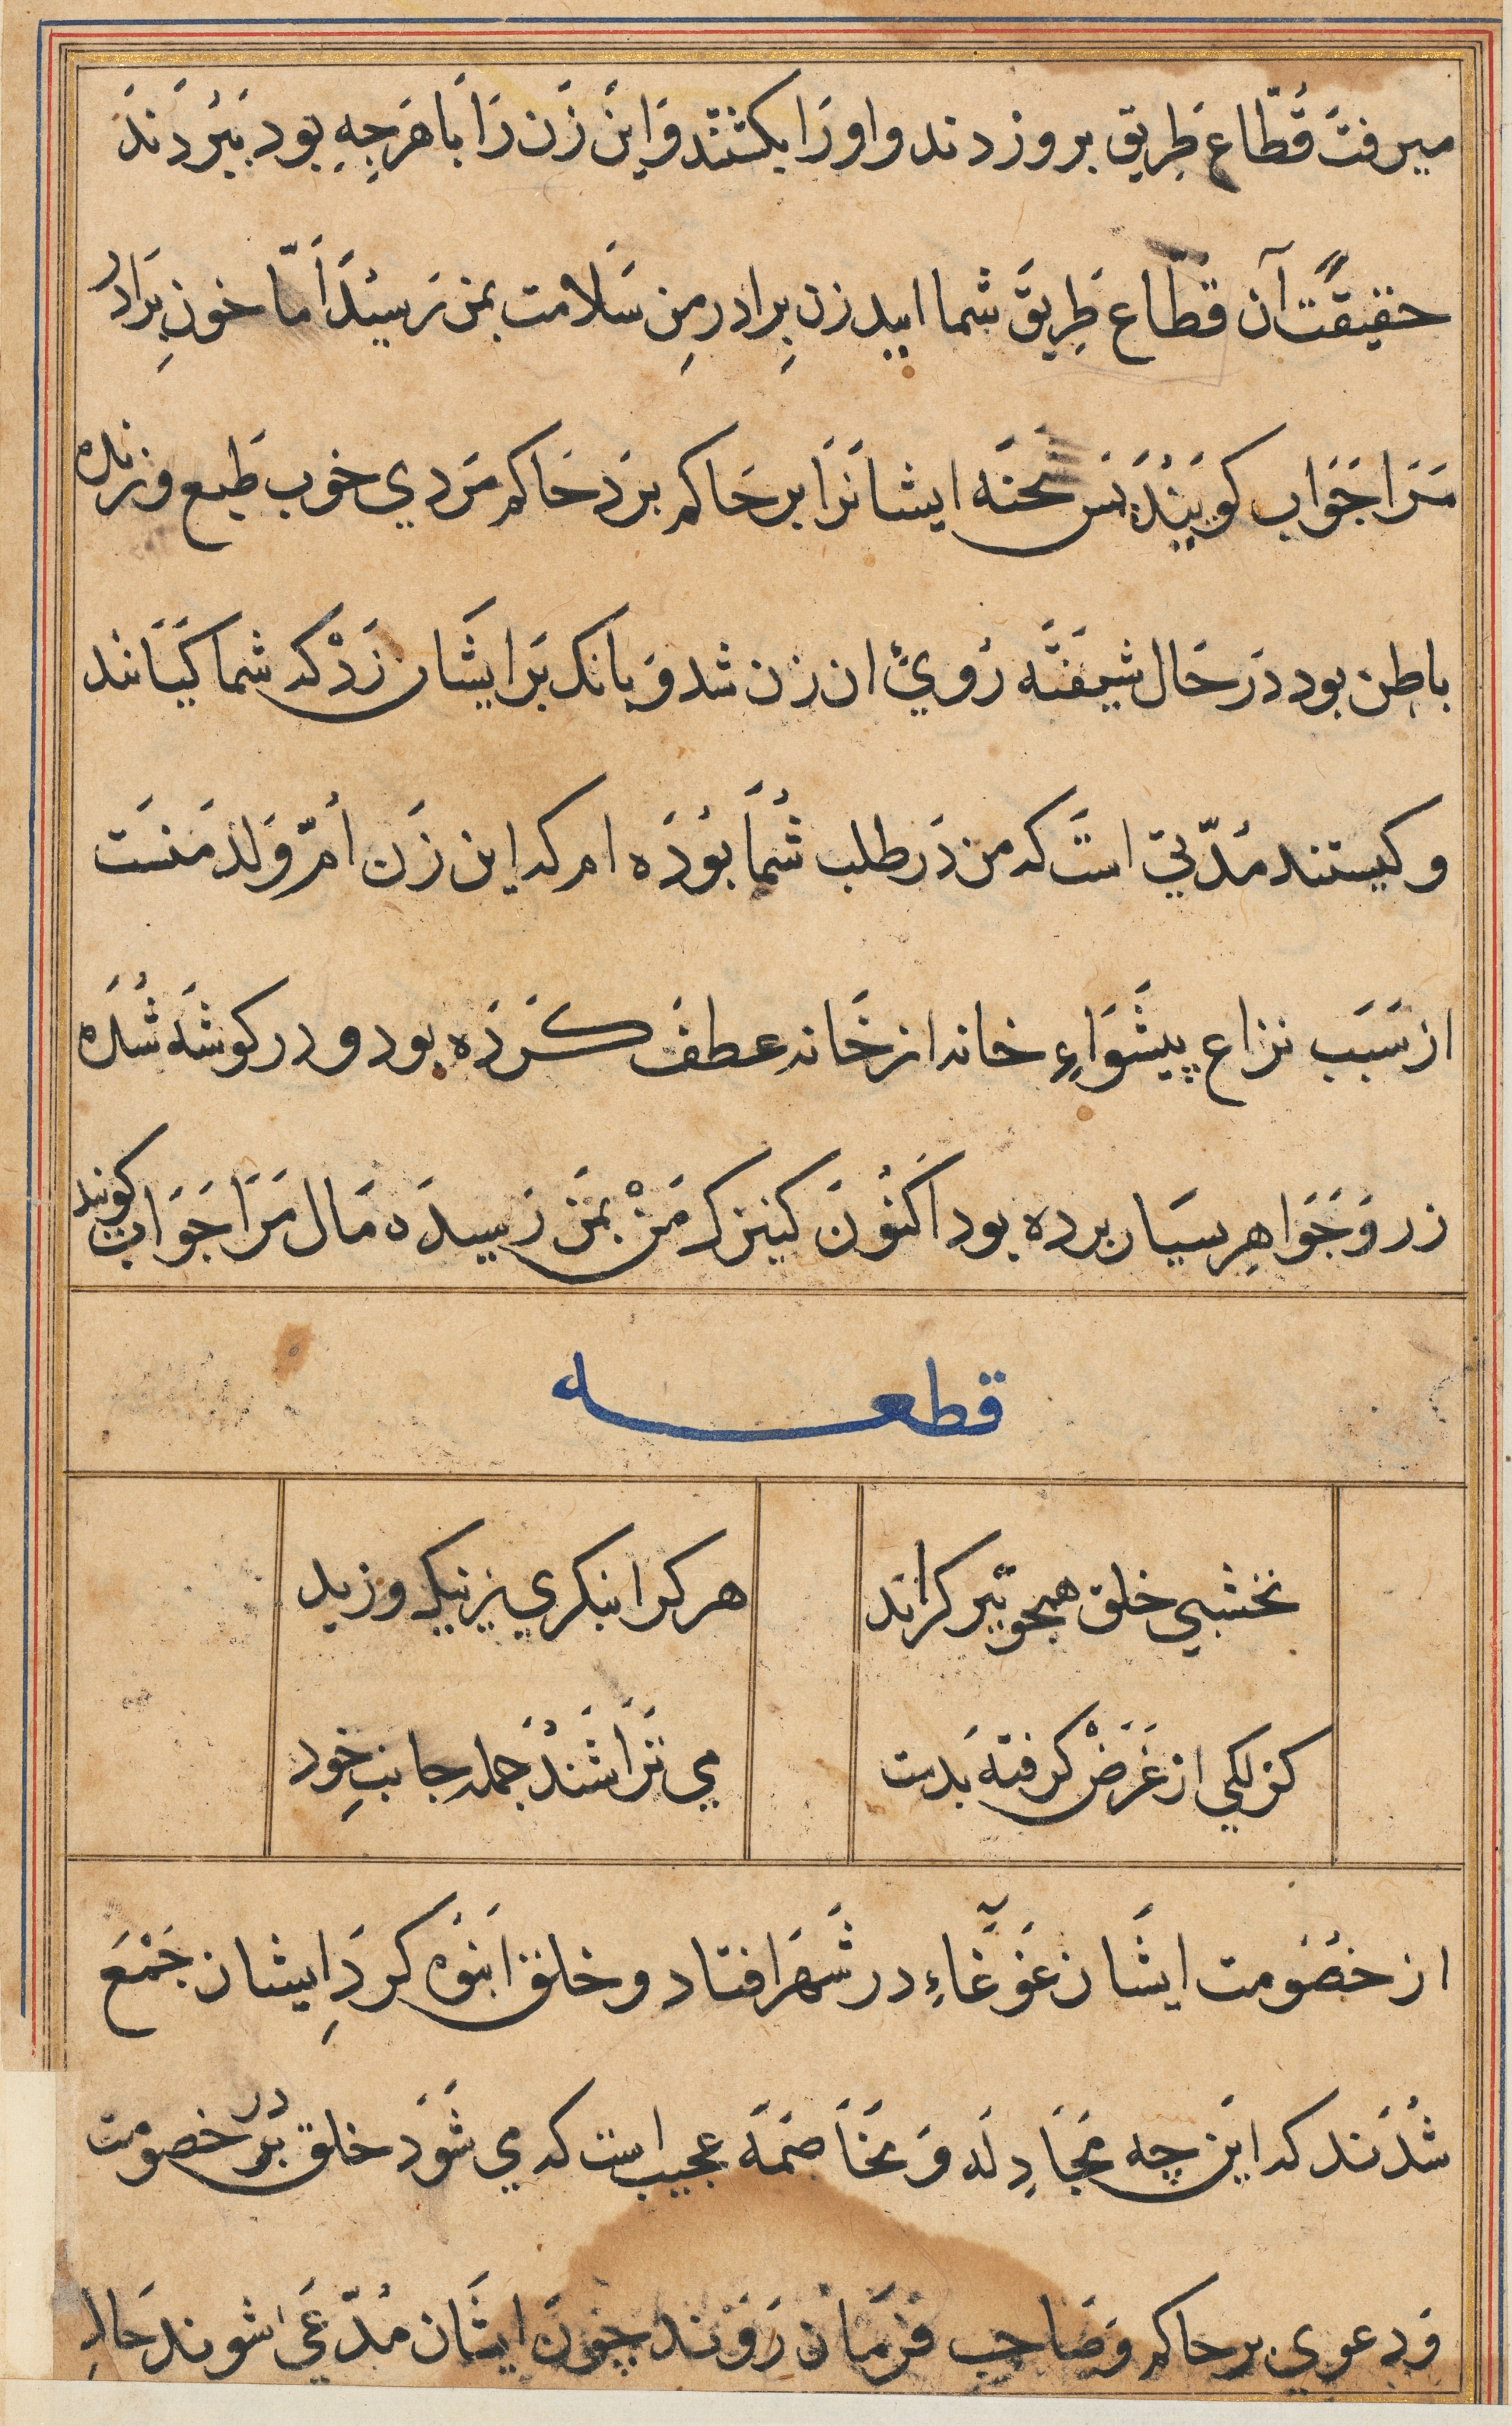 میرفت قُطّاع طریق برو زدند و او را بکشتند و این زن را با هرچه بود ببردند
حقیقةً آن قطّاع طریق شما ایید زن برادر من سلامت بمن رسید امّا خون برادر
مرا جواب کویید پس شحنه ایشانرا بر حاکم برد حاکم مردي خوب طبع و زنده
باطن بود در حال شیفته رُويِ ان زن شد و بانک بر ایشان زد که شما کیانند
و کیستند مدّتی است که من در طلب شما بوده ام که این زن اُمّ ولد منست
از سبب نزاع پیشواءِ خانه از خانه عطف کرده بود و در کوشه شده
زر و جواهر بسیار برده بود اکنون کنیزک من بمن رسیده مال مرا جواب کویید
قطعه
نخشبي خلق همچو تیر کرانَد
هر کرا بنکري ز نیک و ز بد
کزلکي از غرض کرفته بدست
مي تراشند جمله جانب خود
از خصومت ایشان غوغاءِ در شهر افتاد و خلق انبوه کردِ ایشان جمع
شدند که این چه مجادله و مخاصمه عجیب است که مي شود خلق در خصومت
و دعوي بر حاکم و صاحب فرمان روند چون ایشان مُدّعی شوند حال